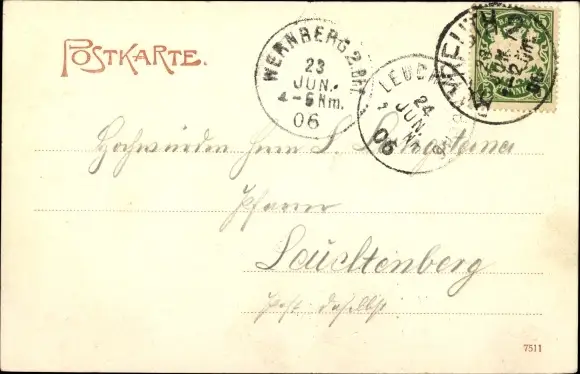 POSTKARTE.
WERNBERG 2. Bhf
23
JUN.
4-5 Nm.
06
LEUCH
24
JUN.
06
Hochwürden Herrn
Pfarrer
Leuchtenberg
Post daselbst
7511